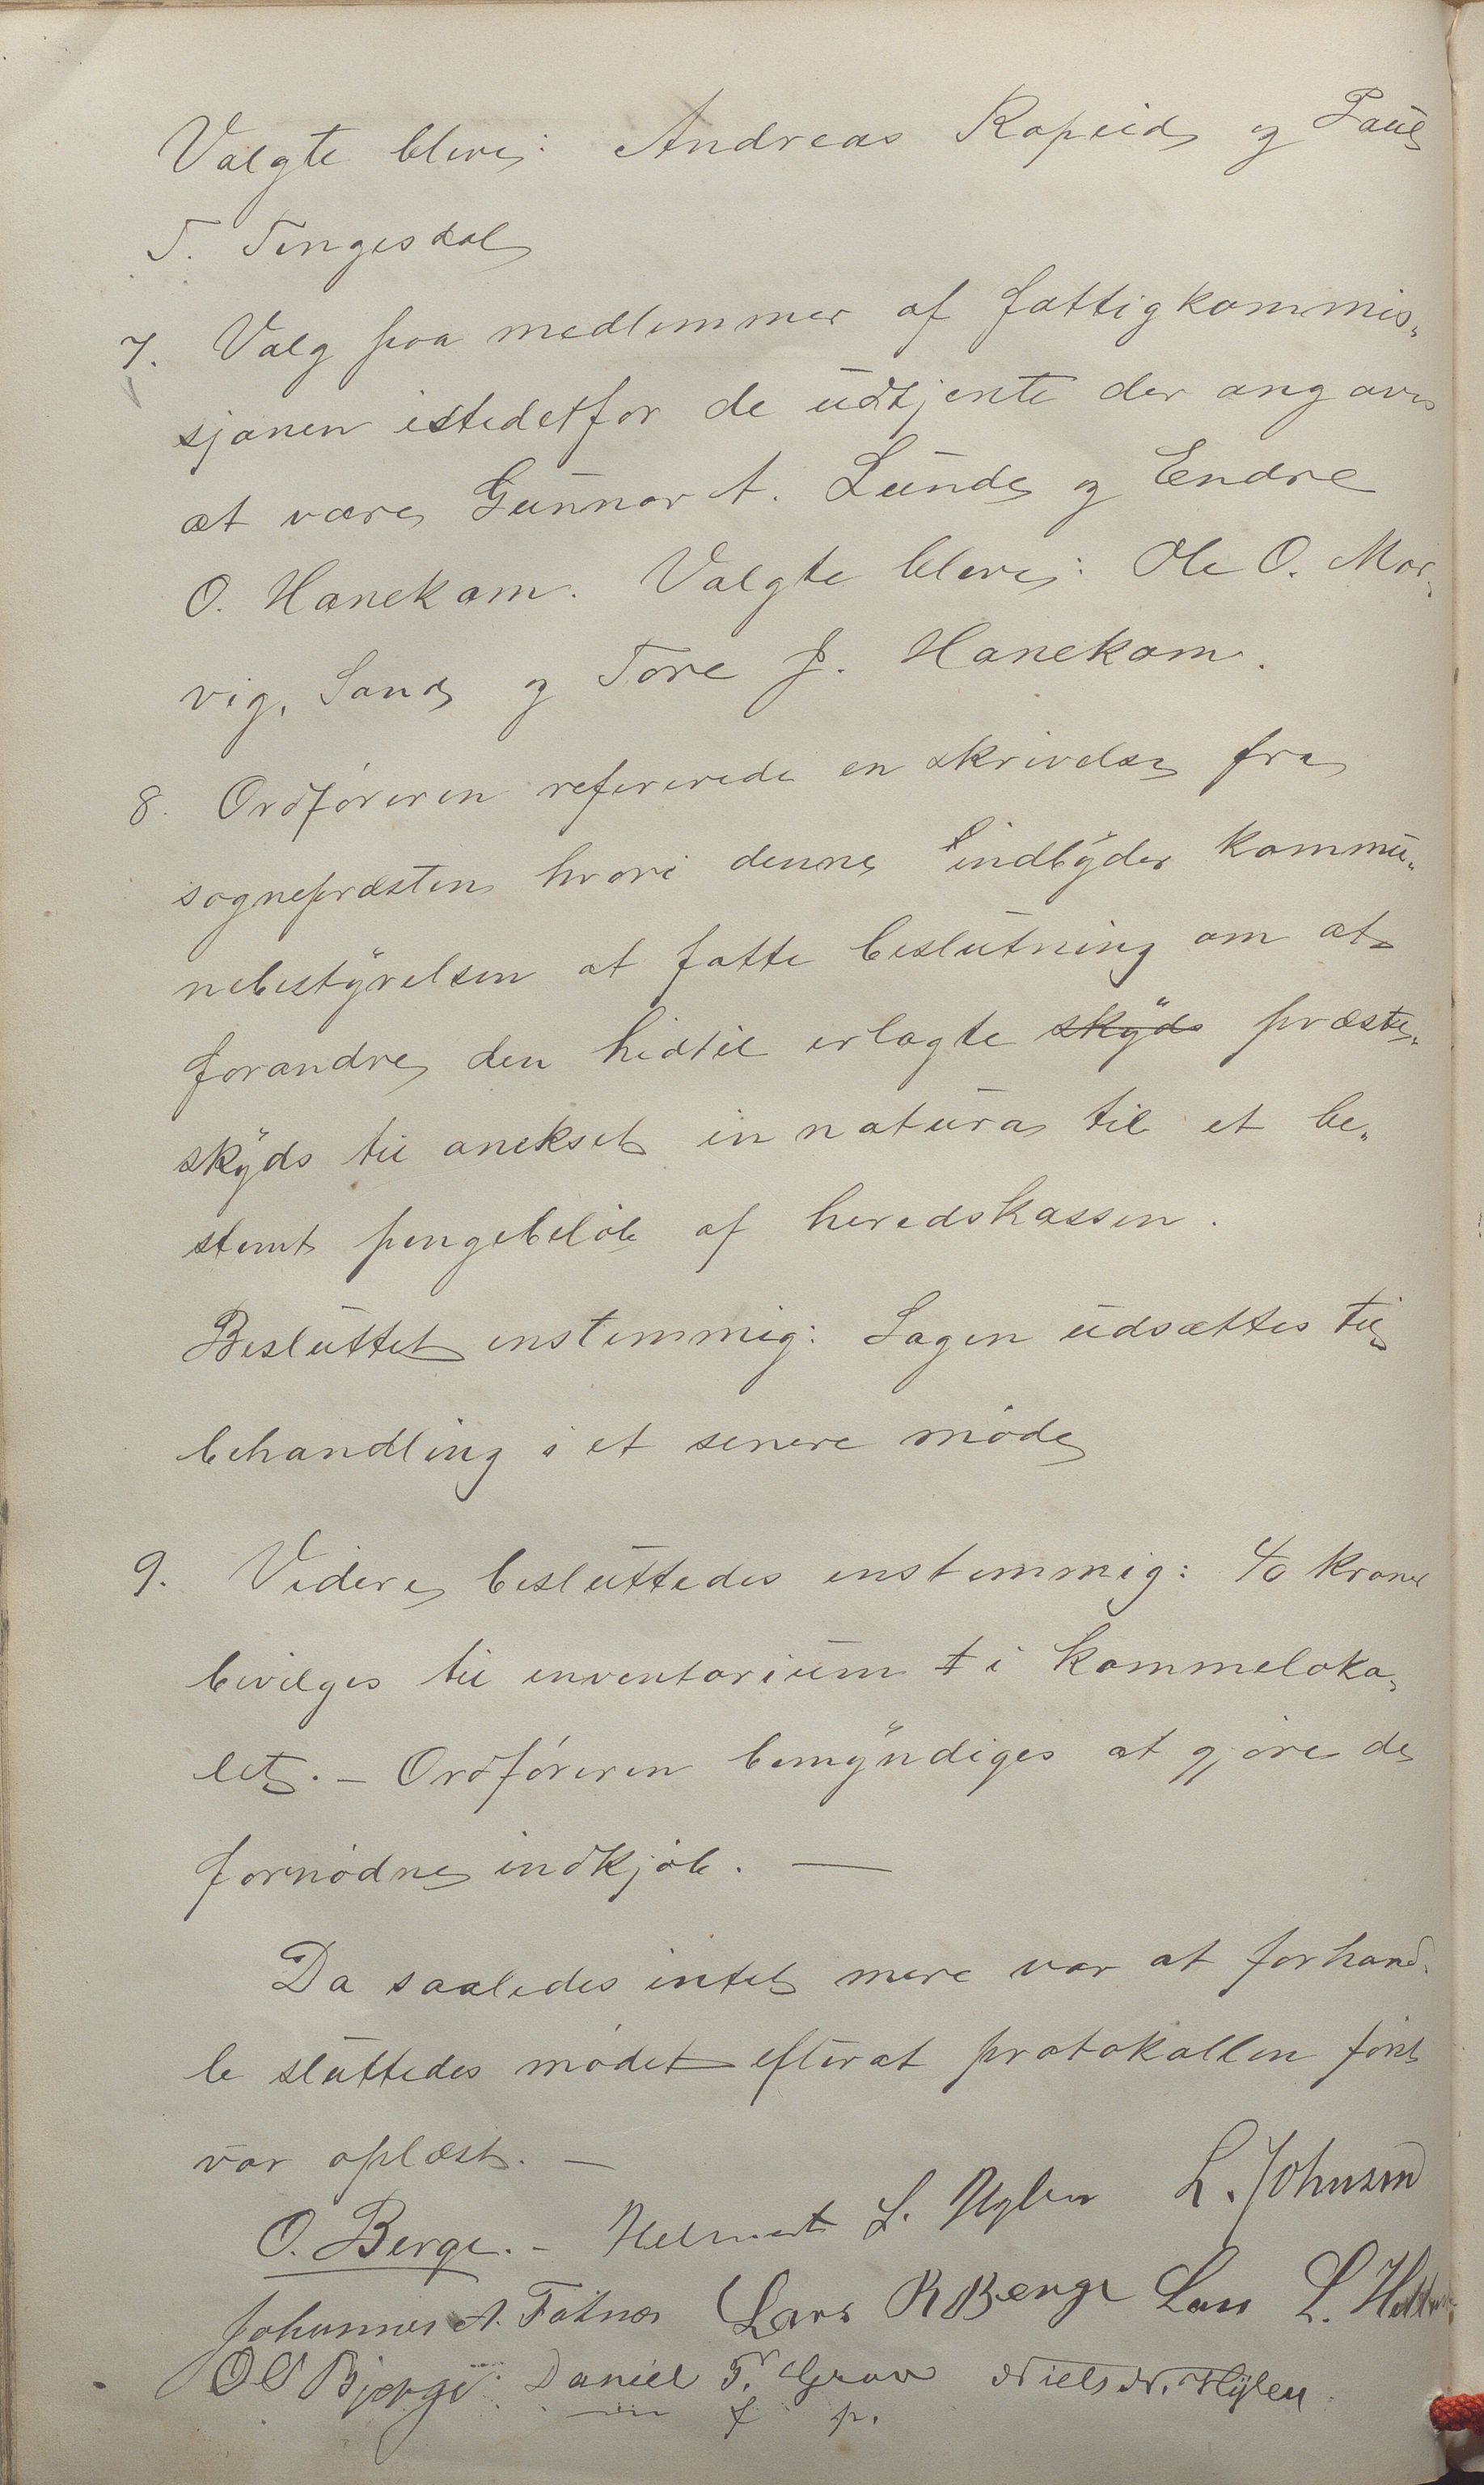 Valgte bleve: Andreas Rapeid og Paul
T. Tengesdal
7. Valg paa medlemmer af fattigkommis-
sjonen istedetfor de udtjente der angaves
at være Gunnar A. Lunde og Endre
O. Hanekam. Valgte bleve: Ole O. Mor-
vig, Sand og Tore J. Hanekam.
8. Ordføreren refererede en skrivelse fra
sognepræsten hvori denne indbyder kommu-
nebestyrelsen at fatte beslutning om at
forandre den hidtil erlagte skyds præste-
skyds til anekset in natura til et be-
stemt pengebeløb af heredskassen.
Besluttet enstemmig: Sagen udsættes til
behandling i et senere møde
9. Videre besluttedes enstemmig: 40 kroner
bevilges til inventarium t i kommeloka-
let. - Ordføreren bemyndiges at gjøre de
fornødne indkjøb. —
Da saaledes intet mere var at forhand-
le sluttedes mødet efterat protokollen først
var oplæst. —
O. Berge. - Helmert L. Hylen L. Johnsen
Johannes A. Fatnes Lars R Berge Lars L.
O O Bjerge Daniel T. Grov Niels N. Hylen
f p.